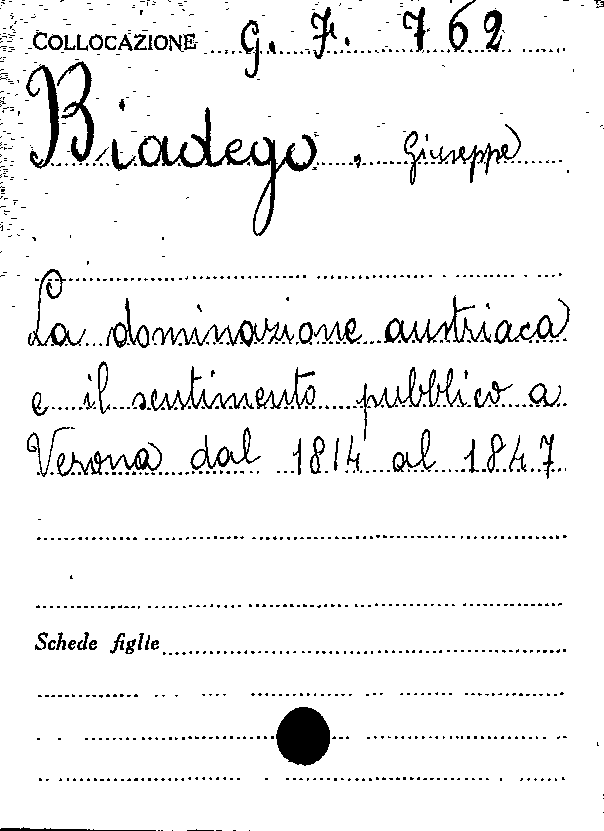 COLLOCAZIONE G. F. 762
Biadego, Giuseppe
La dominazione austriaca
e il sentimento pubblico a
Verona dal 1814 al 1847
Schede figlie